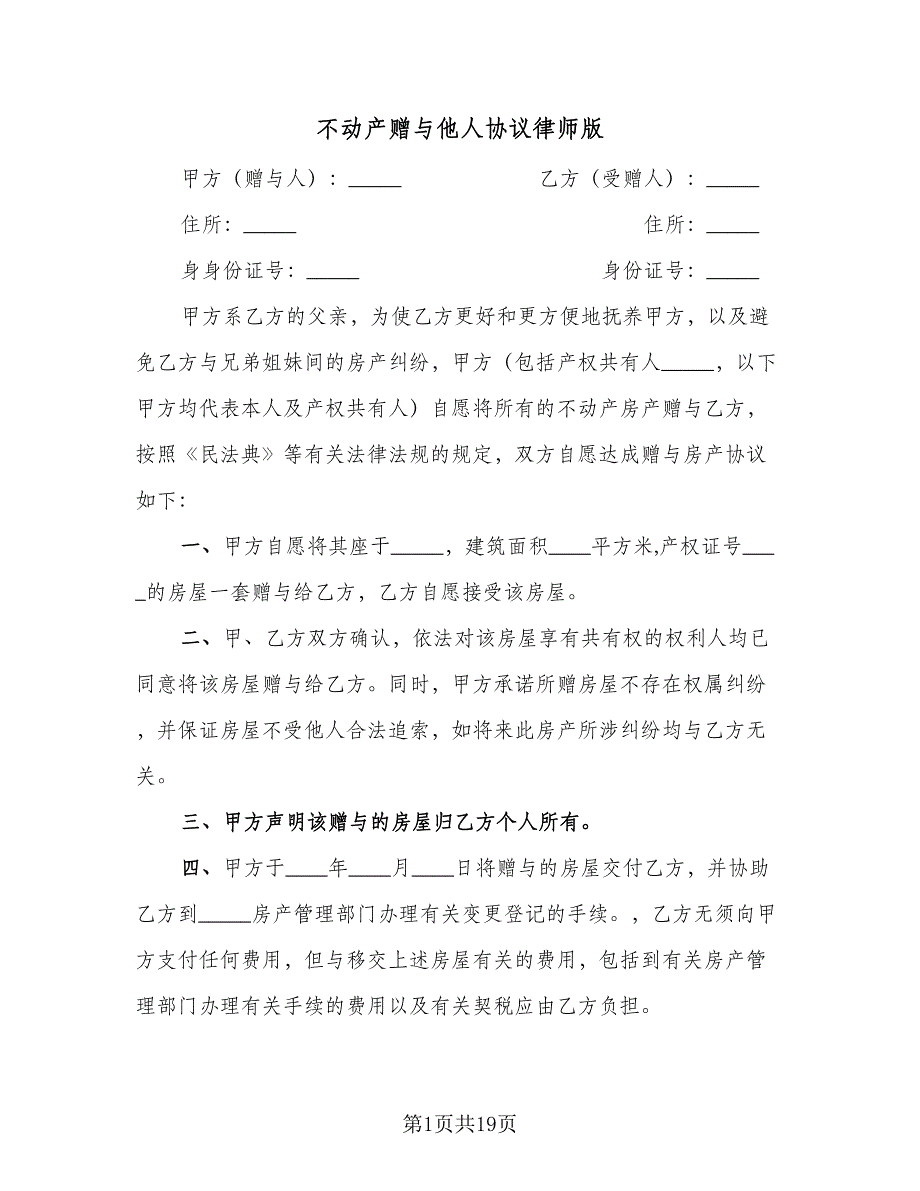 不动产赠与他人协议律师版
甲方（赠与人）：_____ 乙方（受赠人）：_____
住所：_____ 住所：_____
身身份证号：_____ 身份证号：_____
甲方系乙方的父亲，为使乙方更好和更方便地抚养甲方，以及避
免乙方与兄弟姐妹间的房产纠纷，甲方（包括产权共有人_____，以下
甲方均代表本人及产权共有人）自愿将所有的不动产房产赠与乙方，
按照《民法典》等有关法律法规的规定，双方自愿达成赠与房产协议
如下：
一、甲方自愿将其座于_____，建筑面积____平方米,产权证号___
_的房屋一套赠与给乙方，乙方自愿接受该房屋。
二、甲、乙方双方确认，依法对该房屋享有共有权的权利人均已
同意将该房屋赠与给乙方。同时，甲方承诺所赠房屋不存在权属纠纷
，并保证房屋不受他人合法追索，如将来此房产所涉纠纷均与乙方无
关。
三、甲方声明该赠与的房屋归乙方个人所有。
四、甲方于____年____月____日将赠与的房屋交付乙方，并协助
乙方到_____房产管理部门办理有关变更登记的手续。，乙方无须向甲
方支付任何费用，但与移交上述房屋有关的费用，包括到有关房产管
理部门办理有关手续的费用以及有关契税应由乙方负担。
第1页共19页